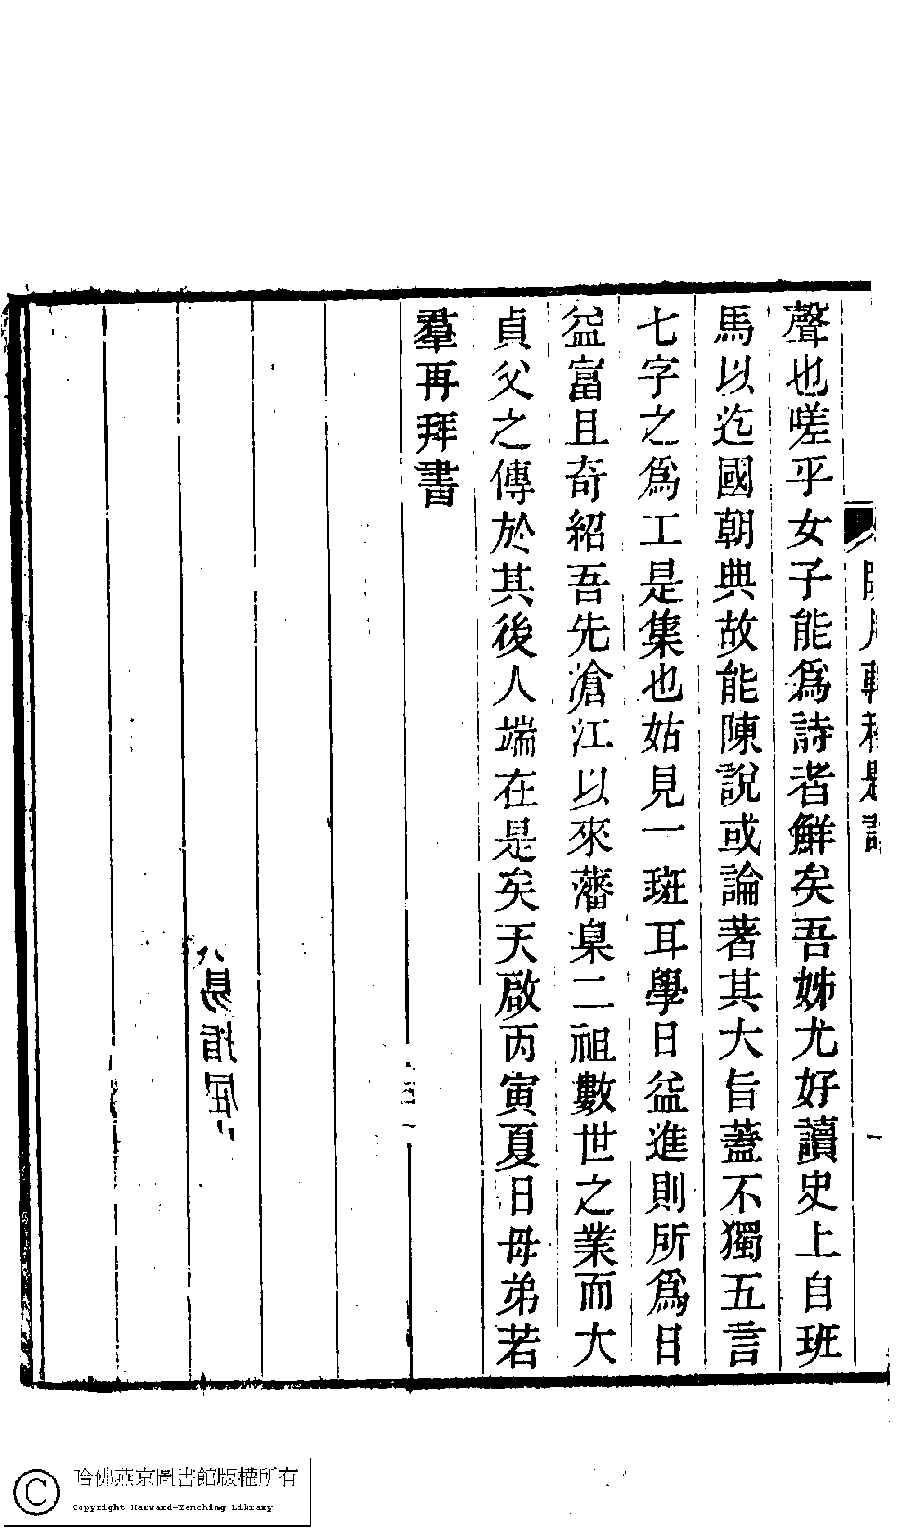 聲也嗟乎女子能爲詩者鮮矣吾姊尤好讀史上自班
馬以迄國朝典故能陳說或論著其大旨蓋不獨五言
七字之爲工是集也姑見一斑耳學日益進則所爲日
益富且奇紹吾先滄江以來藩臬二祖數世之業而大
貞父之傳於其後人端在是矣天啟丙寅夏日毋弟若
羣再拜書
哈佛燕京圖書館版權所有
Copyright Harvard-Yenching Library